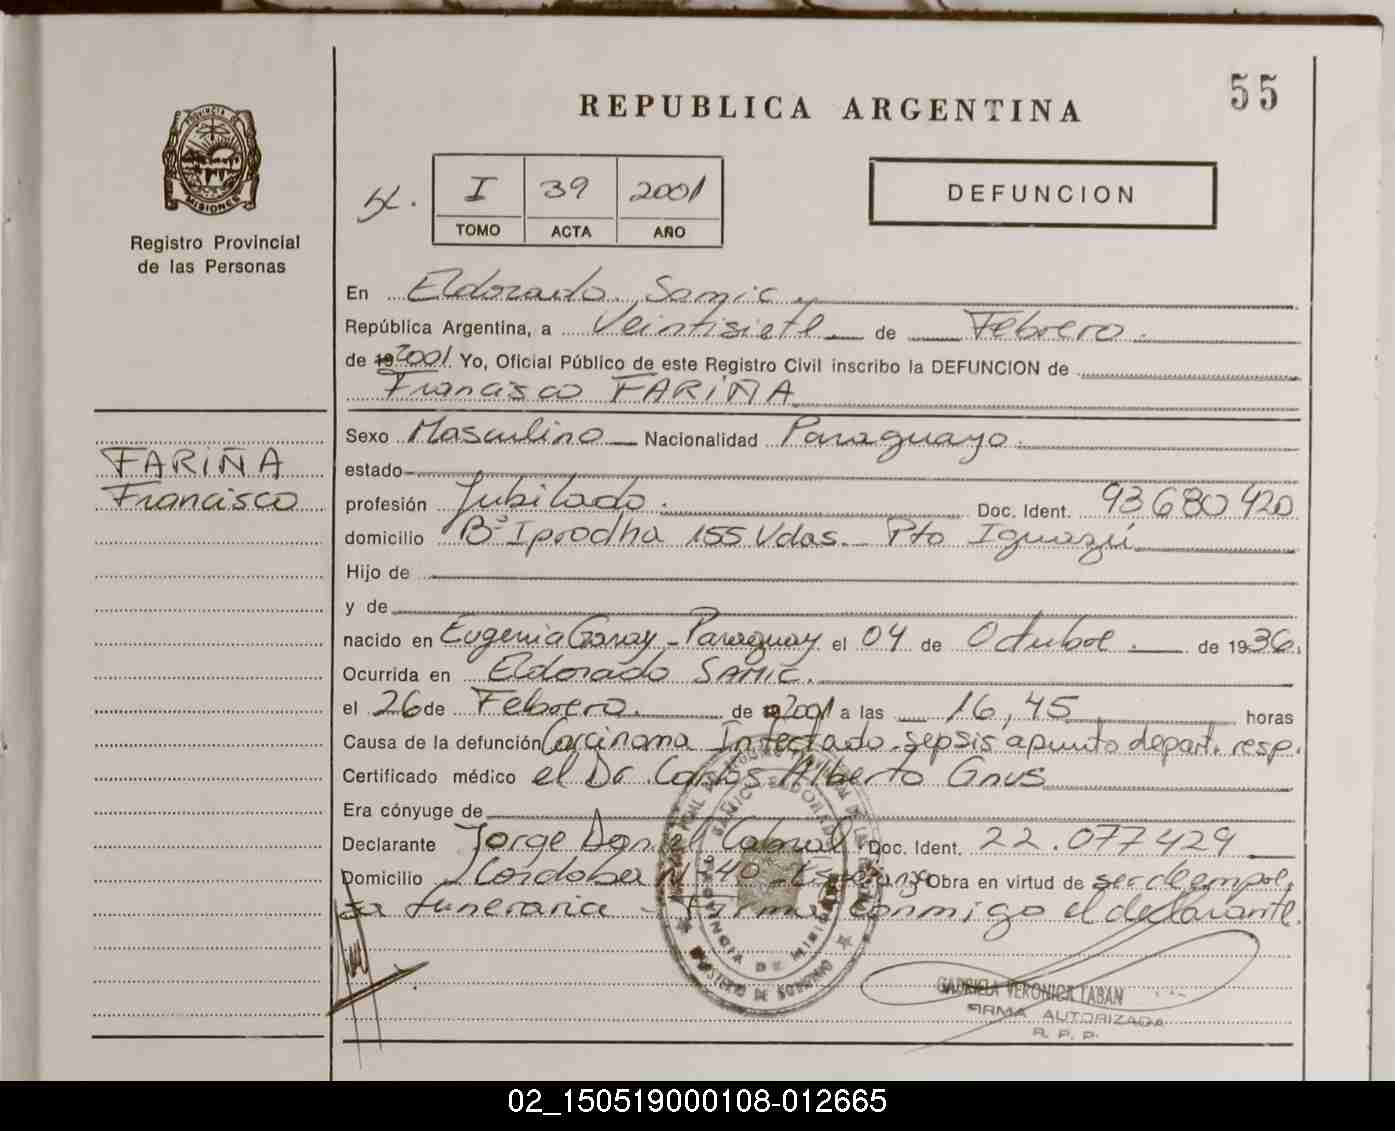 55
REPUBLICA ARGENTINA
PROVINCIA DE
MISIONES
Registro Provincial
de las Personas
I 39 2001
TOMO ACTA AÑO
DEFUNCION
En Eldorado Samic
República Argentina, a Veintisiete de Febrero.
de 19 2001. Yo, Oficial Público de este Registro Civil inscribo la DEFUNCION de
Francisco FARIÑA
FARIÑA
Francisco
Sexo Masculino Nacionalidad Paraguayo.
estado
profesión Jubilado. Doc. Ident. 93680420
domicilio B° Iprodha 155 Vdas. Pto Iguazú
Hijo de
y de
nacido en Eugenia Garay - Paraguay el 04 de Octubre. de 1936.
Ocurrida en Eldorado SAMIC.
el 26 de Febrero. de 2001 a las 16,45 horas
Causa de la defunción Carcinoma Infectado. sepsis a punto depart. resp.
Certificado médico el Dr Carlos Alberto Gnus
Era cónyuge de
Declarante Jorge Daniel Cabral. Doc. Ident. 22.077429
Domicilio Cordoba N° 40 - Esperanza Obra en virtud de ser de empre
sa funeraria - Firma conmigo el declarante.
SAMIC ELDORADO
PROVINCIA DE MISIONES
MINISTERIO DE GOBIERNO
GABRIELA VERONICA TABAN
FIRMA AUTORIZADA
R. P. P.
02_150519000108-012665